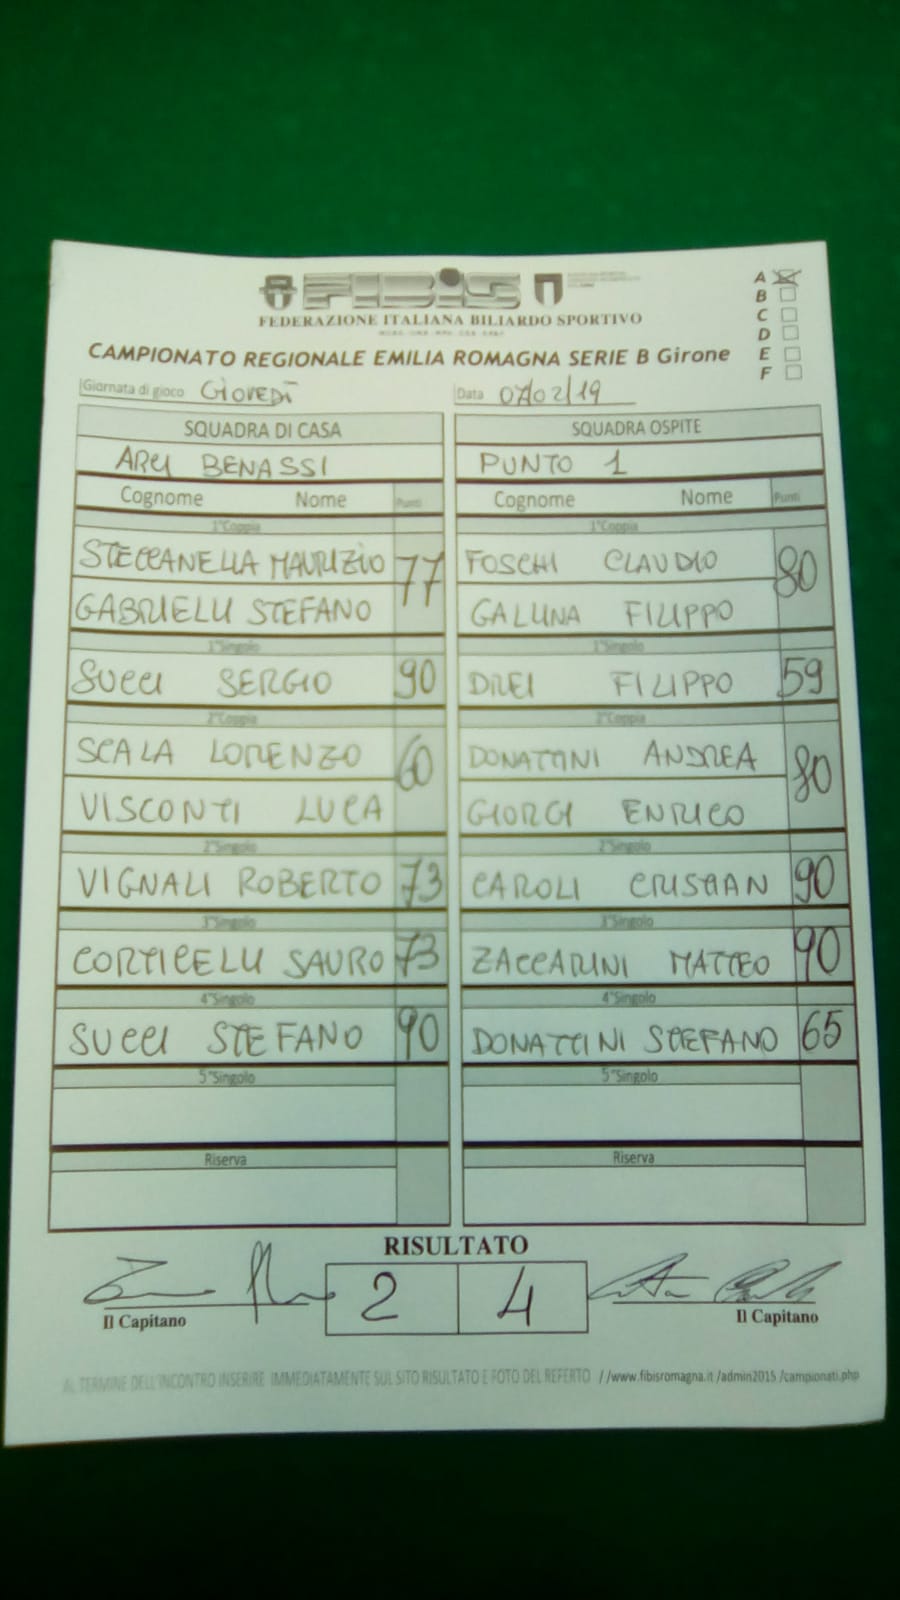 FIBiS
FEDERAZIONE ITALIANA BILIARDO SPORTIVO
A
B
C
D
E
F
CAMPIONATO REGIONALE EMILIA ROMAGNA SERIE B Girone
Giornata di gioco GIOVEDÌ Data 07/02/19
SQUADRA DI CASA SQUADRA OSPITE
ARCI BENASSI PUNTO 1
Cognome Nome Punti Cognome Nome Punti
1°Coppia 1°Coppia
STECCANELLA MAURIZIO 77 FOSCHI CLAUDIO 80
GABRIELLI STEFANO GALLINA FILIPPO
1°Singolo 1°Singolo
SUCCI SERGIO 90 DREI FILIPPO 59
2°Coppia 2°Coppia
SCALA LORENZO 60 DONATTINI ANDREA 80
VISCONTI LUCA GIORGI ENRICO
2°Singolo 2°Singolo
VIGNALI ROBERTO 73 CAROLI CRISTIAN 90
3°Singolo 3°Singolo
CORTICELLI SAURO 73 ZACCARINI MATTEO 90
4°Singolo 4°Singolo
SUCCI STEFANO 90 DONATTINI STEFANO 65
5°Singolo 5°Singolo
Riserva Riserva
RISULTATO
2 4
Il Capitano Il Capitano
AL TERMINE DELL'INCONTRO INSERIRE IMMEDIATAMENTE SUL SITO RISULTATO E FOTO DEL REFERTO //www.fibisromagna.it /admin2015 /campionati.php